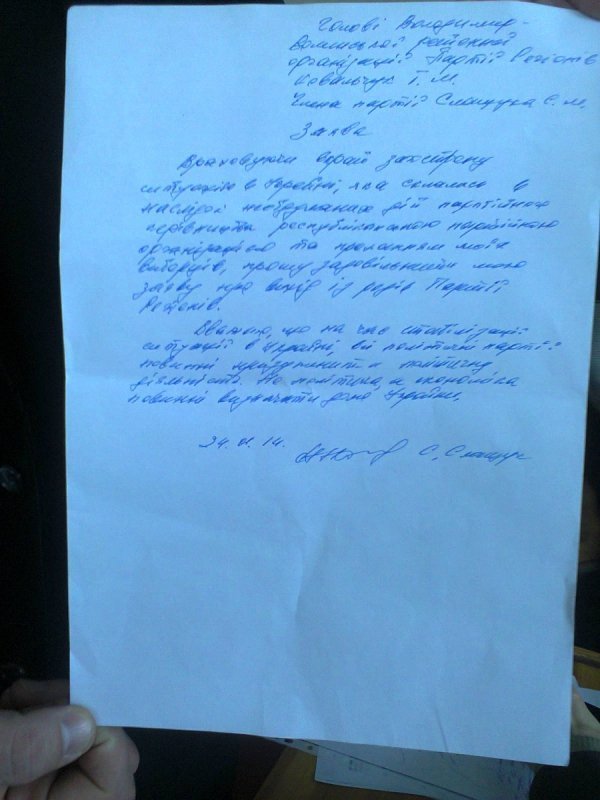 Голові Володимир-
Волинської районної
організації Партії Регіонів
Ковальчук Т. М.
Члена партії Слащука С. М.
Заява
Враховуючи вкрай загострену
ситуацію в Україні, яка склалась в
наслідок необдуманих дій партійного
керівництва республіканською партійною
організацією та проханням моїх
виборців, прошу задовільнити мою
заяву про вихід із рядів Партії
Регіонів.
Вважаю, що на час стабілізації
ситуації в Україні, всі політичні партії
повинні призупинити політичну
діяльність. Не політика, а економіка
повинні визначати долю України.
С. Слащук